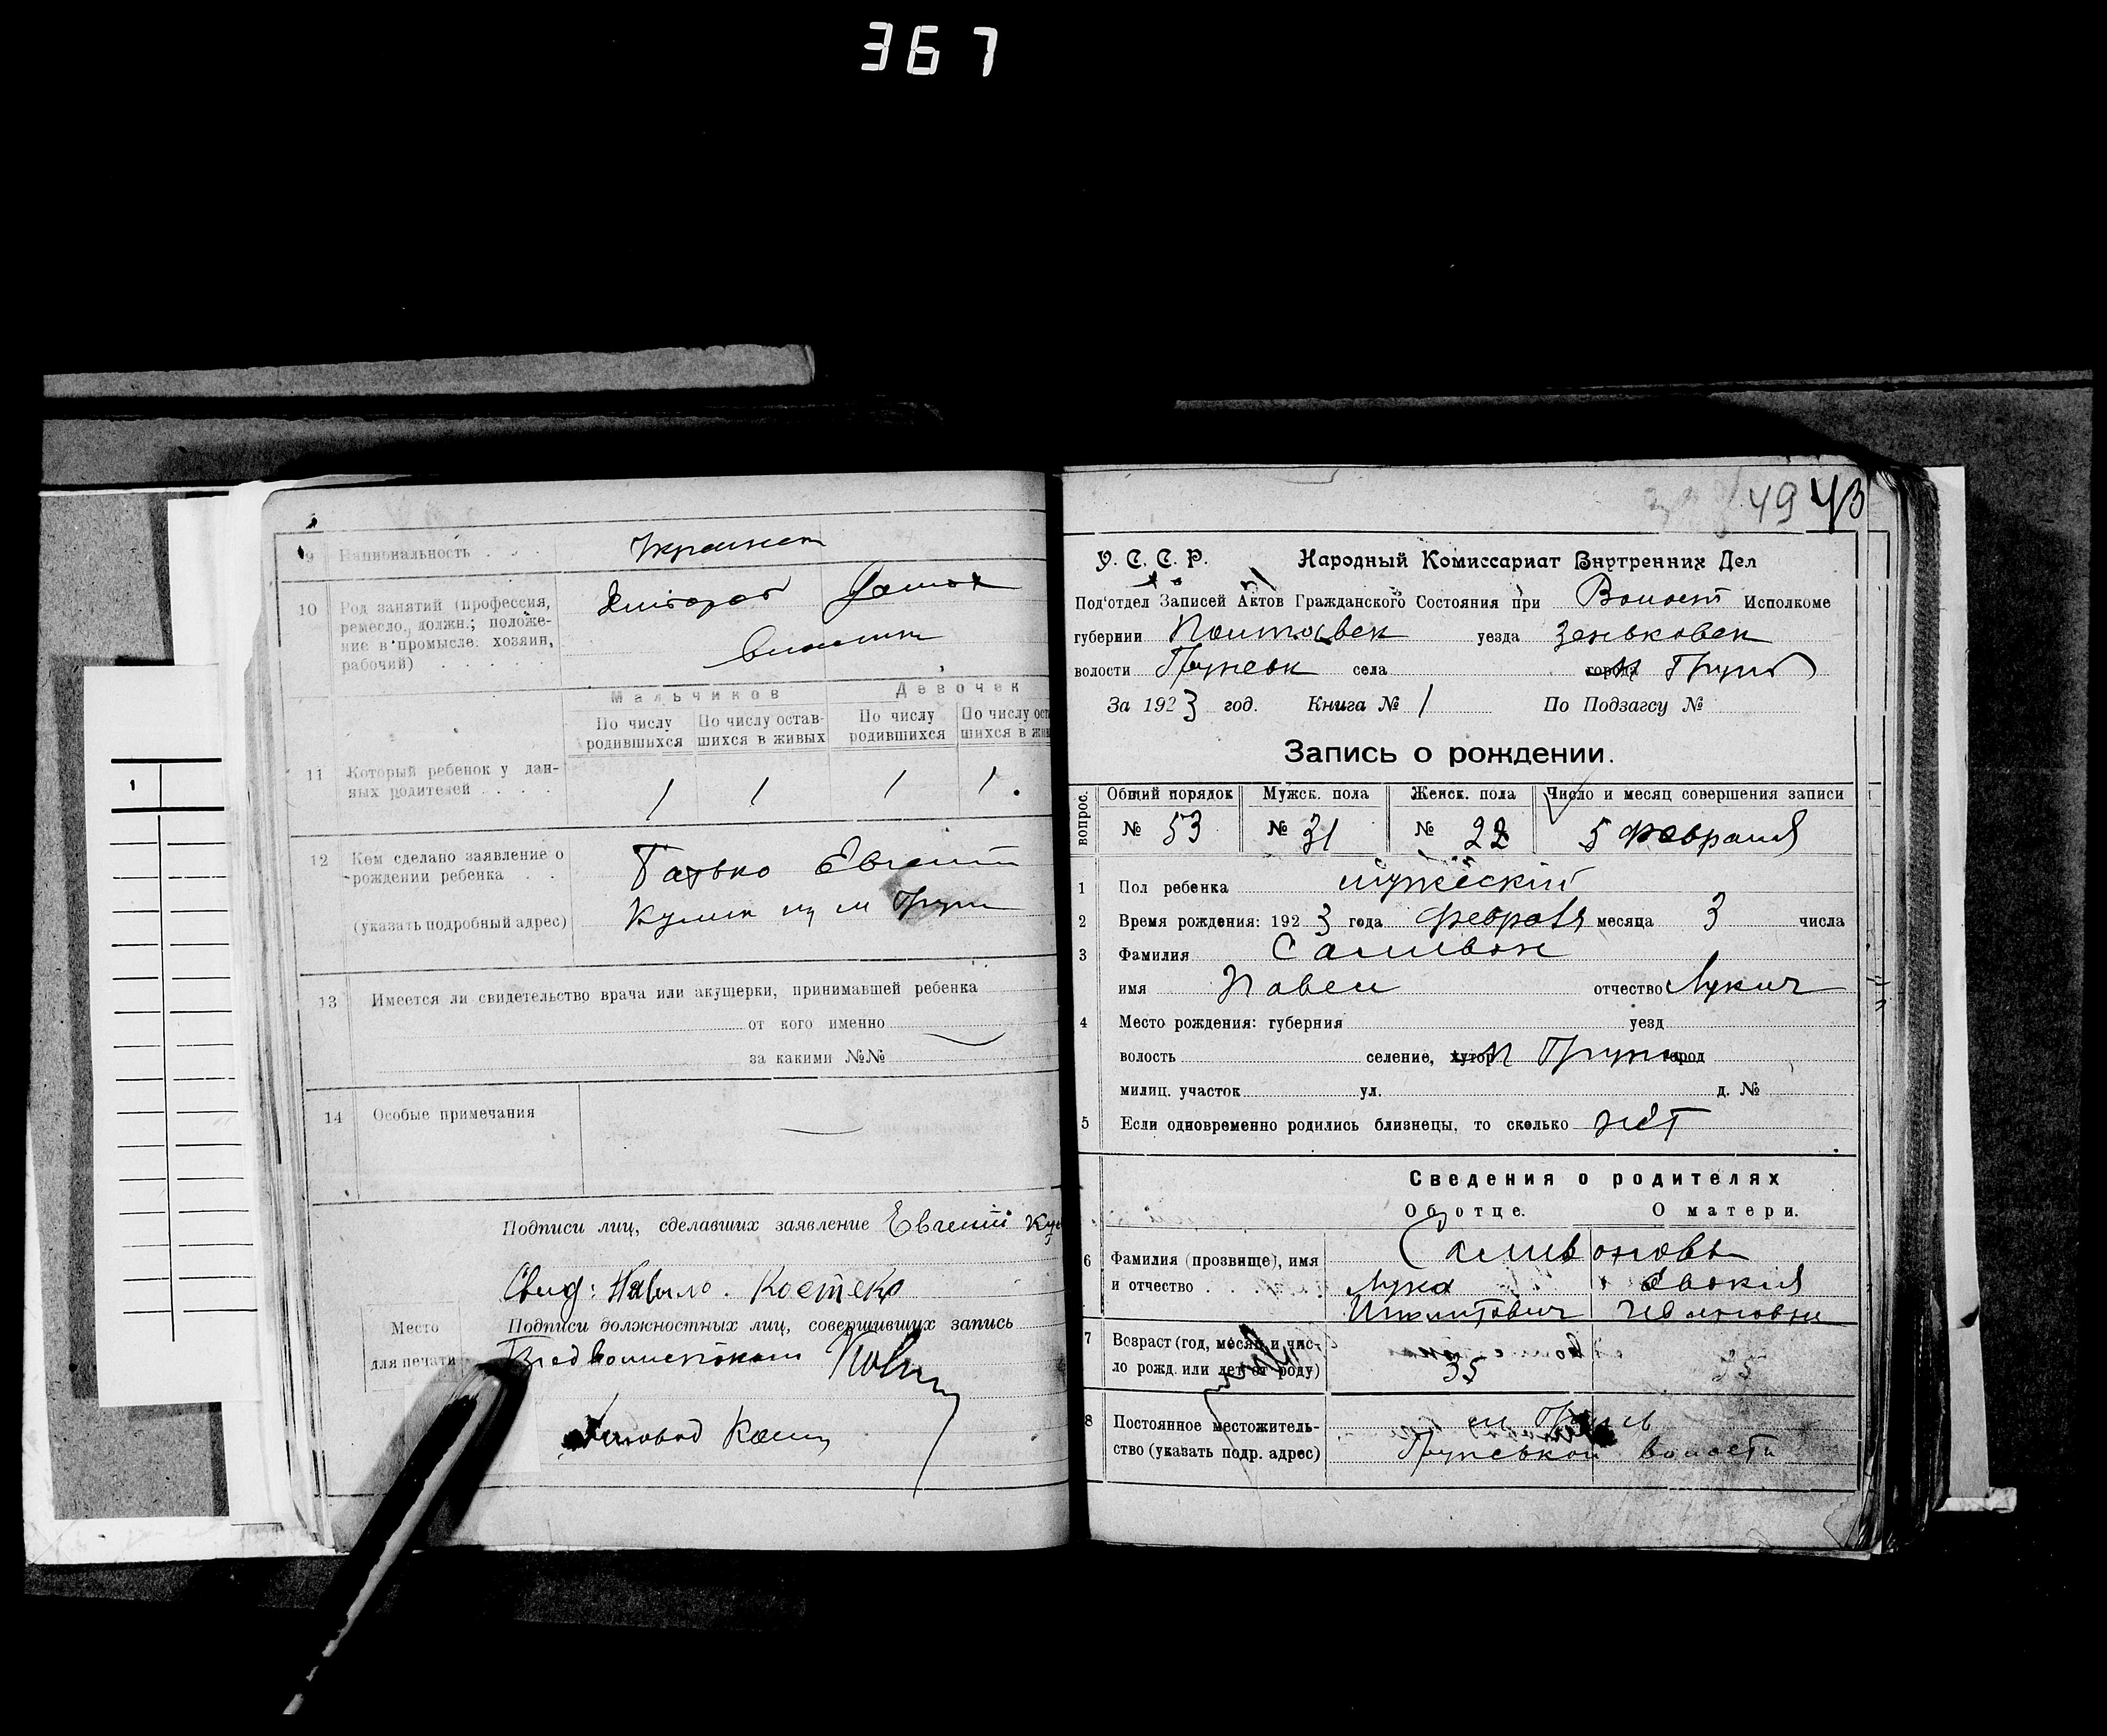 367
9 Национальность . . .
Украинец
10 Род занятий (профессия,
ремесло, должн.; положе-
ние в промысле. хозяин,
рабочий) . . . . .
Мальчиков Девочек
По числу родившихся По числу остав-шихся в живых По числу родившихся По числу
11 Который ребенок у дан-
ных родителей . . . .
1 1 1 1.
12 Кем сделано заявление о
рождении ребенка . .
Батько Евгений
(указать подробный адрес)
13 Имеется ли свидетельство врача или акушерки, принимавшей ребенка
от кого именно
за какими №№
14 Особые примечания
Подписи лиц, сделавших заявление Евгений
Свид:
Место
для печати
Подписи должностных лиц, совершивших запись
49 43
У. С. С. Р. Народный Комиссариат Внутренних Дел
Под'отдел Записей Актов Гражданского Состояния при Волост Исполкоме
губернии Полтавск уезда Зеньковск
волости Грунск села города м Грунь
За 1923 год. Книга № 1 По Подзагсу №
Запись о рождении.
вопрос.
Общий порядок Мужск. пола Женск. пола Число и месяц совершения записи
№ 53 № 31 № 22 5 февраля
1 Пол ребенка мужеский
2 Время рождения: 1923 года февраля месяца 3 числа
3 Фамилия Саливон
имя Павел отчество Лукич
4 Место рождения: губерния уезд
волость селение, хутор м Грунь город
милиц. участок ул. д. №
5 Если одновременно родились близнецы, то сколько нет
Сведения о родителях
Об отце. О матери.
6 Фамилия (прозвище), имя
и отчество . .
Саливоновы
Лука
7 Возраст (год, месяц и чис-
ло рожд. или лет от роду)
35 35
8 Постоянное местожитель-
ство (указать подр. адрес)
м Грунь
Грунськой волости